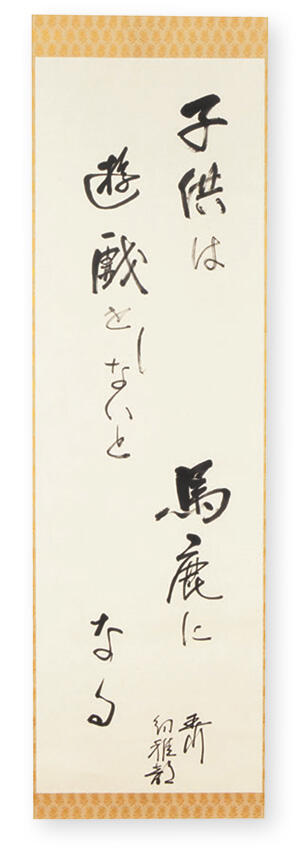 子供は
遊戯をしないと
馬鹿に
なる